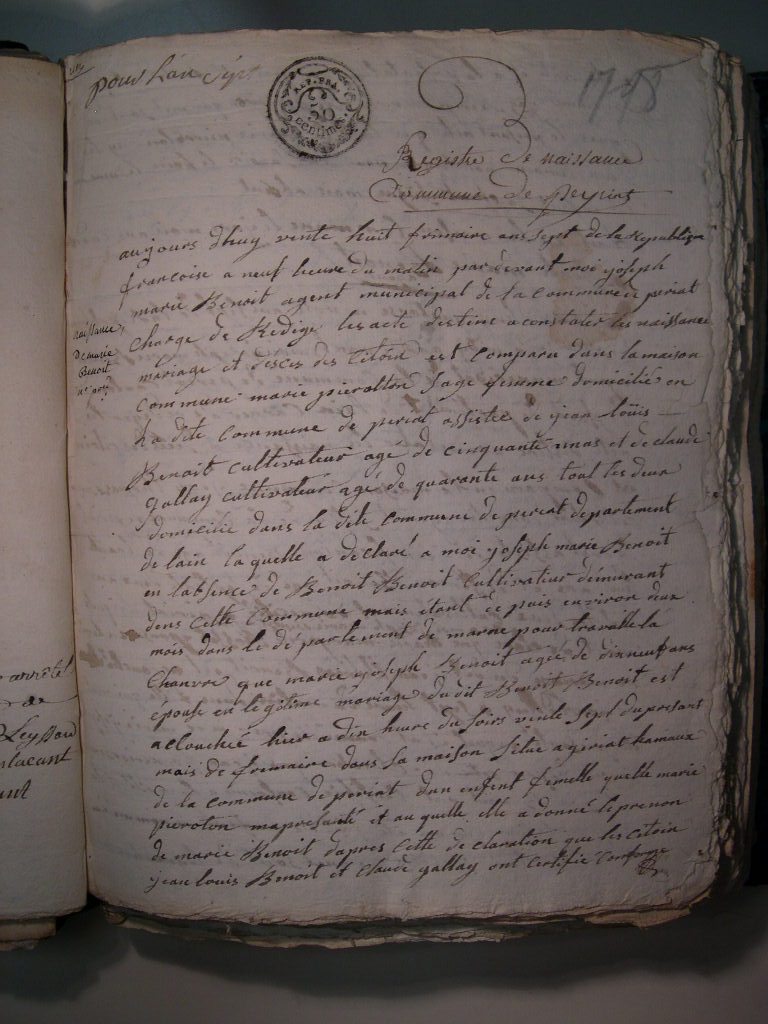 pour L'an Sept
REP. FRA.
50
centime
1798
Registre De naissance
Commune De peyriat
aujours dhuy vente huit frimaire ans sept de la Republique
francoise a neuf heure du matin par devant moi joseph
marie Benoit agent municipal de la commune de periat
Charge de Redige les acte destine a constater les naissance
mariage et déscès des Citoin est comparu dans la maison
commune marie pierotton sage femme domicilié en
La dite commune de periat assistée de jean loüis
Benoit cultivateur agé de cinquante unas et de claude
gallay cultivateur agé de quarante ans tout les deux
domiciliée dans la dite commune de periat departement
de lain laquelle a declaré a moi joseph marie Benoit
en labsence de Benoit Benoit Cultivateur demurant
dens cette commune mais étant de puis environ deux
mois dans le département de marne pour travaillé la
Chanvre que marie joseph Benoit agée de dixneuf ans
épouse en légitime mariage du dit Benoit Benoit est
accouchée hier a dix heure du soirs vinte sept du presant
mais de fremaire dans sa maison situe a giriat hamaux
de la commune de periat dun enfent femelle quelle marie
pieroton mapresanté et au quelle elle a donné le prenon
de marie Benoit dapres cette de claration que les citoin
jean louis Benoit et claude gallay ont certifie conforme
naissance
De marie
Benoit
arretél
de
Leyssard
placant
ant